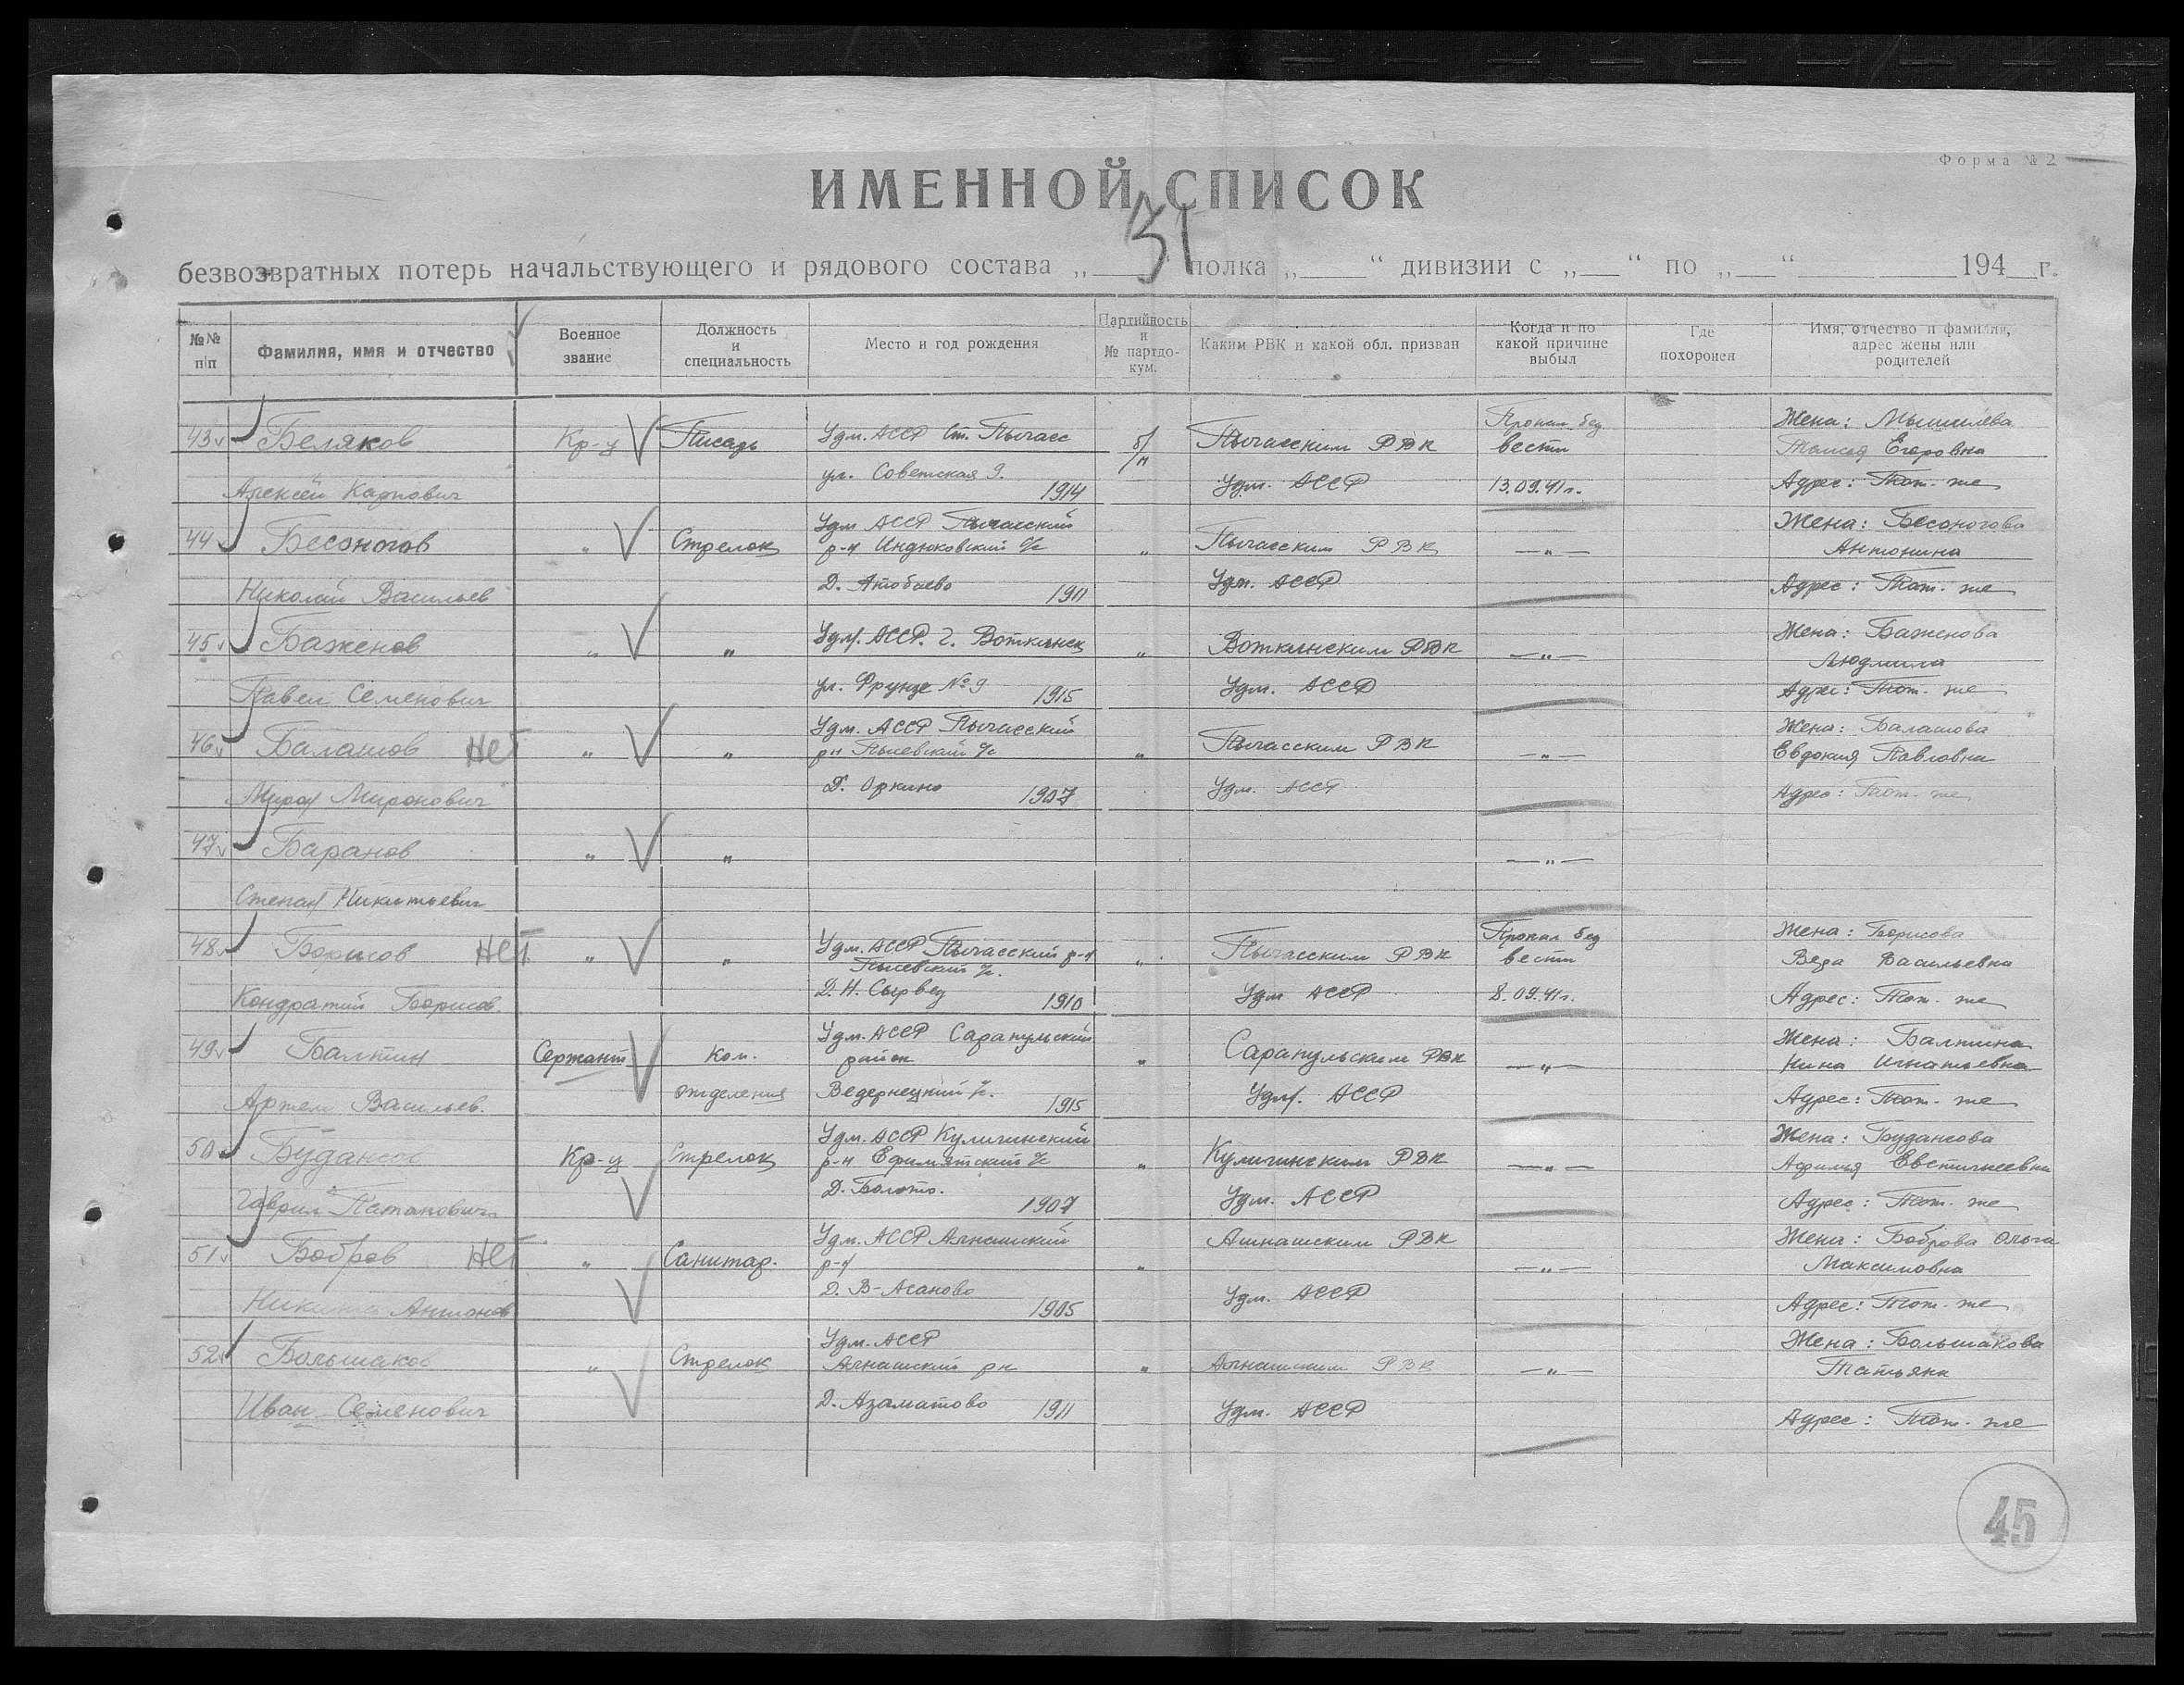 Форма № 2
ИМЕННОЙ СПИСОК
безвозвратных потерь начальствующего и рядового состава „ “ полка „ “ дивизии с „ “ по „ “ 194 г.
№№ п/п
Фамилия, имя и отчество
Военное звание
Должность и специальность
Место и год рождения
Партийность и № партдокум.
Каким РВК и какой обл. призван
Когда и по какой причине выбыл
Где похоронен
Имя, отчество и фамилия, адрес жены или родителей
43 Беляков Кр-ц Писарь Удм. АССР Ст. Пычасс б/п Пычасским РВК Пропал без вести Жена: Мышиляева
Таисья Егоровна
Алексей Карпович ул. Советская 9. 1914 Удм. АССР 13.09.41г. Адрес: Там-же
44 Бесоногов " Стрелок Удм АССР Пычасский
р-н Индюковский с/с " Пычасским РВК —"— Жена: Бесоногова
Антонина
Николай Васильев Д. Атабаево 1911 Удм. АССР Адрес: Там-же
45 Баженов " " Удм. АССР. г. Воткинск " Воткинским РВК —"— Жена: Баженова
Людмила
Павел Семенович ул. Фрунзе № 9 1915 Удм. АССР Адрес: Там-же
46 Балашов Нет " " Удм. АССР Пычасский
рн с/с " Пычасским РВК —"— Жена: Балашова
Евдокия Павловна
Мирон Миронович Д. Оркино 1907 Удм. АССР Адрес: Там-же
47 Баранов " " —"—
Степан Никитьевич
48 Борисов Нет " " Удм. АССР Пычасский р-н
с/с. " Пычасским РВК Пропал без вести Жена: Борисова
Вера Васильевна
Кондратий Борисов. Д. Н. Сырвед 1910 Удм АССР 8.09.41г. Адрес: Там-же
49 Балтин Сержант Ком. Удм. АССР Сарапульский
район " Сарапульским РВК —"— Жена: Балтина
Нина Игнатьевна
Артем Васильев. отделения с/с. 1915 Удм. АССР Адрес: Там-же
50 Кр-ц Стрелок Удм. АССР Кулигинский
р-н с/с " Кулигинским РВК —"— Жена:
Гаврил Д. Болото. 1907 Удм. АССР Адрес: Там-же
51 Бобров Нет " Санитар. Удм. АССР Алнашский
р-н " Алнашским РВК —"— Жена: Боброва Ольга
Максимовна
Никита Антонов Д. В-Асаново 1905 Удм. АССР Адрес: Там-же
52 Большаков " Стрелок Удм. АССР
Алнашский рн " Алнашским РВК —"— Жена: Большакова
Татьяна
Иван Семенович Д. Азаматово 1911 Удм. АССР Адрес: Там-же
45